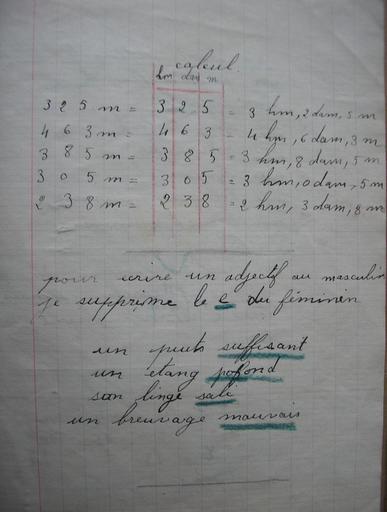 calcul
hm dam m
325 m = 3 2 5 = 3 hm, 2 dam, 5 m
463 m = 4 6 3 = 4 hm, 6 dam, 3 m
385 m = 3 8 5 = 3 hm, 8 dam, 5 m
305 m = 3 0 5 = 3 hm, 0 dam, 5 m
238 m = 2 3 8 = 2 hm, 3 dam, 8 m
pour écrire un adjectif au masculin
je supprime le e du féminin
un puits suffisant
un étang pofond
son linge sali
un breuvage mauvais